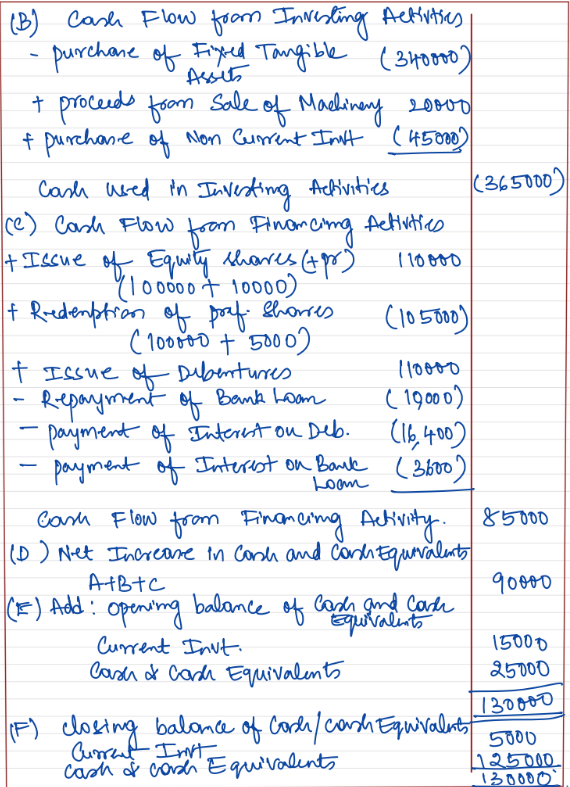 (B) Cash Flow from Investing Activities
- purchase of Fixed Tangible (340000)
Assets
+ proceeds from Sale of Machinery 20000
+ purchase of Non Current Invt (45000)
Cash used in Investing Activities (365000)
(C) Cash Flow from Financing Activities
+ Issue of Equity shares (+pr) 110000
(100000 + 10000)
+ Redemption of pref. Shares (105000)
(100000 + 5000)
+ Issue of Debentures 110000
- Repayment of Bank Loan (19000)
- payment of Interest on Deb. (16,400)
- payment of Interest on Bank (3600)
Loan
Cash Flow from Financing Activity. 85000
(D) Net Increase in Cash and Cash Equivalents
A+B+C 90000
(E) Add: opening balance of Cash and Cash
Equivalents
Current Invt. 15000
Cash & Cash Equivalents 25000
130000
(F) closing balance of Cash/Cash Equivalents
Current Invt 5000
Cash & Cash Equivalents 125000
130000